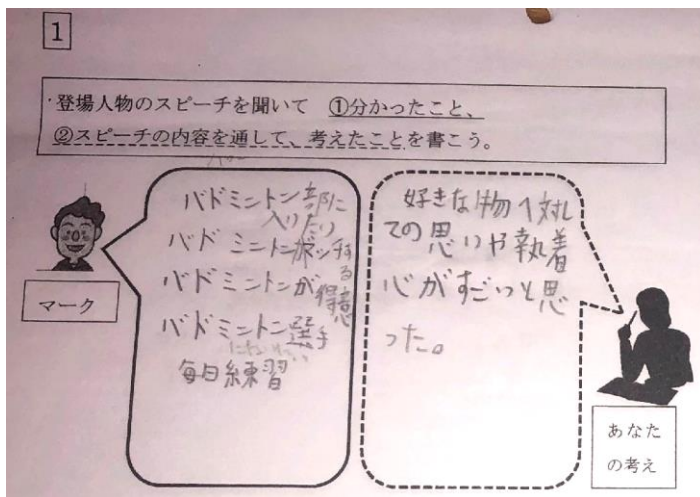 1
・登場人物のスピーチを聞いて ①分かったこと、
②スピーチの内容を通して、考えたことを書こう。
マーク
バドミントン部に
入りたい
バドミントン
バドミントンが得意
バドミントン選手
毎日練習
好きな物へ対し
ての思いや執着
心がすごいと思
った。
あなた
の考え